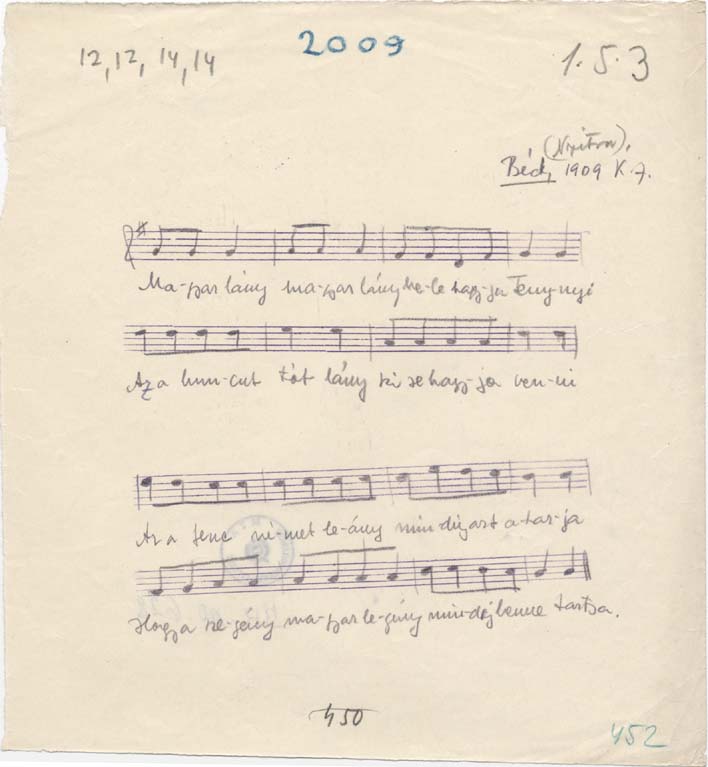 12, 12, 14, 14
2009
1. 5. 3
(Nyitra),
Béd, 1909 K. Z.
Ma-gyar lány ma-gyar lány be-le hagy-ja tenny-nyi
Az a hun-cut tót lány ki se hagy-ja ven-ni
Az a fene né-met le-ány min-dig azt a-kar-ja
Hogy a sze-gény ma-gyar le-gény min-dég benne tartsa.
450
452